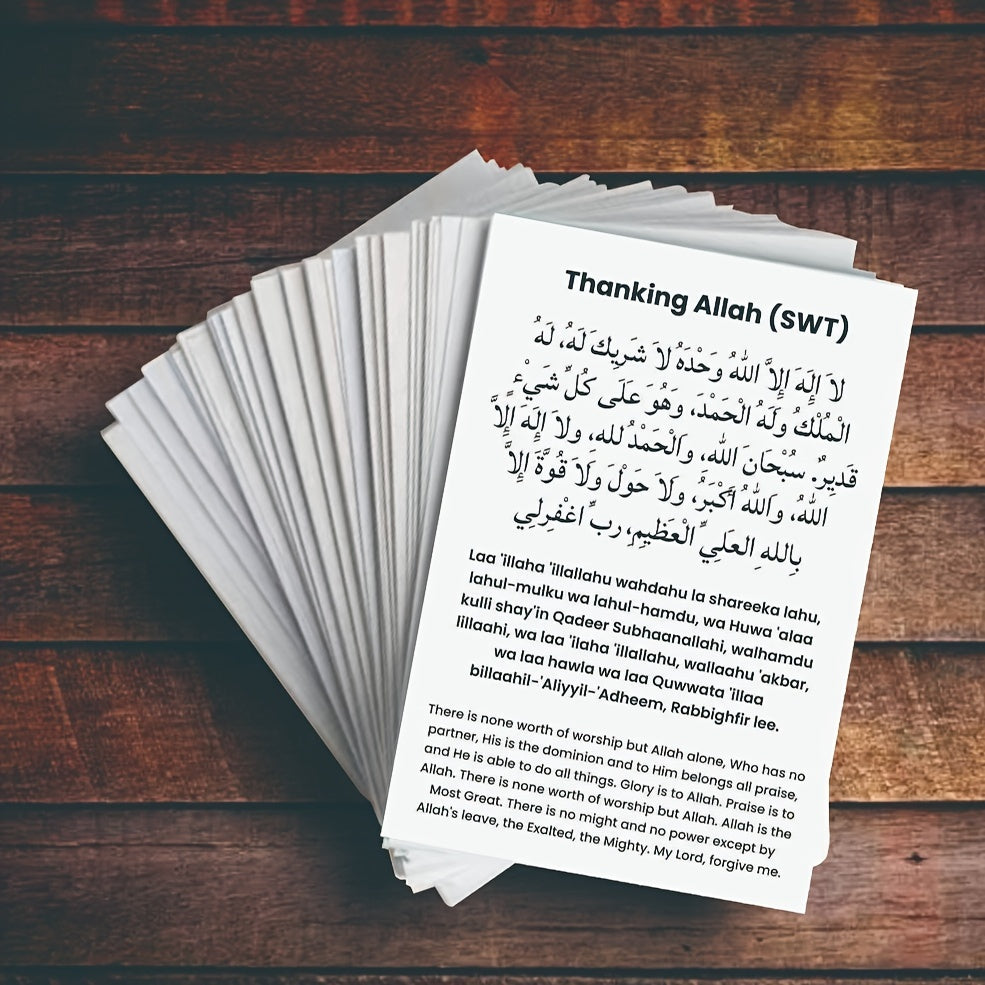 Thanking Allah (SWT)
لاَ إِلَهَ إِلاَّ اللهُ وَحْدَهُ لاَ شَرِيكَ لَهُ، لَهُ
الْمُلْكُ وَلَهُ الْحَمْدَ، وَهُوَ عَلَى كُلِّ شَيْءٍ
قَدِيرٌ. سُبْحَانَ اللهِ، وَالْحَمْدُ لله، ولا إِلَهَ إِلاَّ
اللهُ، وَاللهُ أَكْبَرُ، وَلَا حَوْلَ وَلَا قُوَّةَ إِلاَّ
بِاللهِ العَلِيِّ الْعَظِيمِ، ربِّ اغْفْرلِي
Laa 'illaha 'illallahu wahdahu la shareeka lahu,
lahul-mulku wa lahul-hamdu, wa Huwa 'alaa
kulli shay'in Qadeer Subhaanallahi, walhamdu
lillaahi, wa laa 'ilaha 'illallahu, wallaahu 'akbar,
wa laa hawla wa laa Quwwata 'illaa
billaahil-'Aliyyil-'Adheem, Rabbighfir lee.
There is none worth of worship but Allah alone, Who has no
partner, His is the dominion and to Him belongs all praise,
and He is able to do all things. Glory is to Allah. Praise is to
Allah. There is none worth of worship but Allah. Allah is the
Most Great. There is no might and no power except by
Allah's leave, the Exalted, the Mighty. My Lord, forgive me.